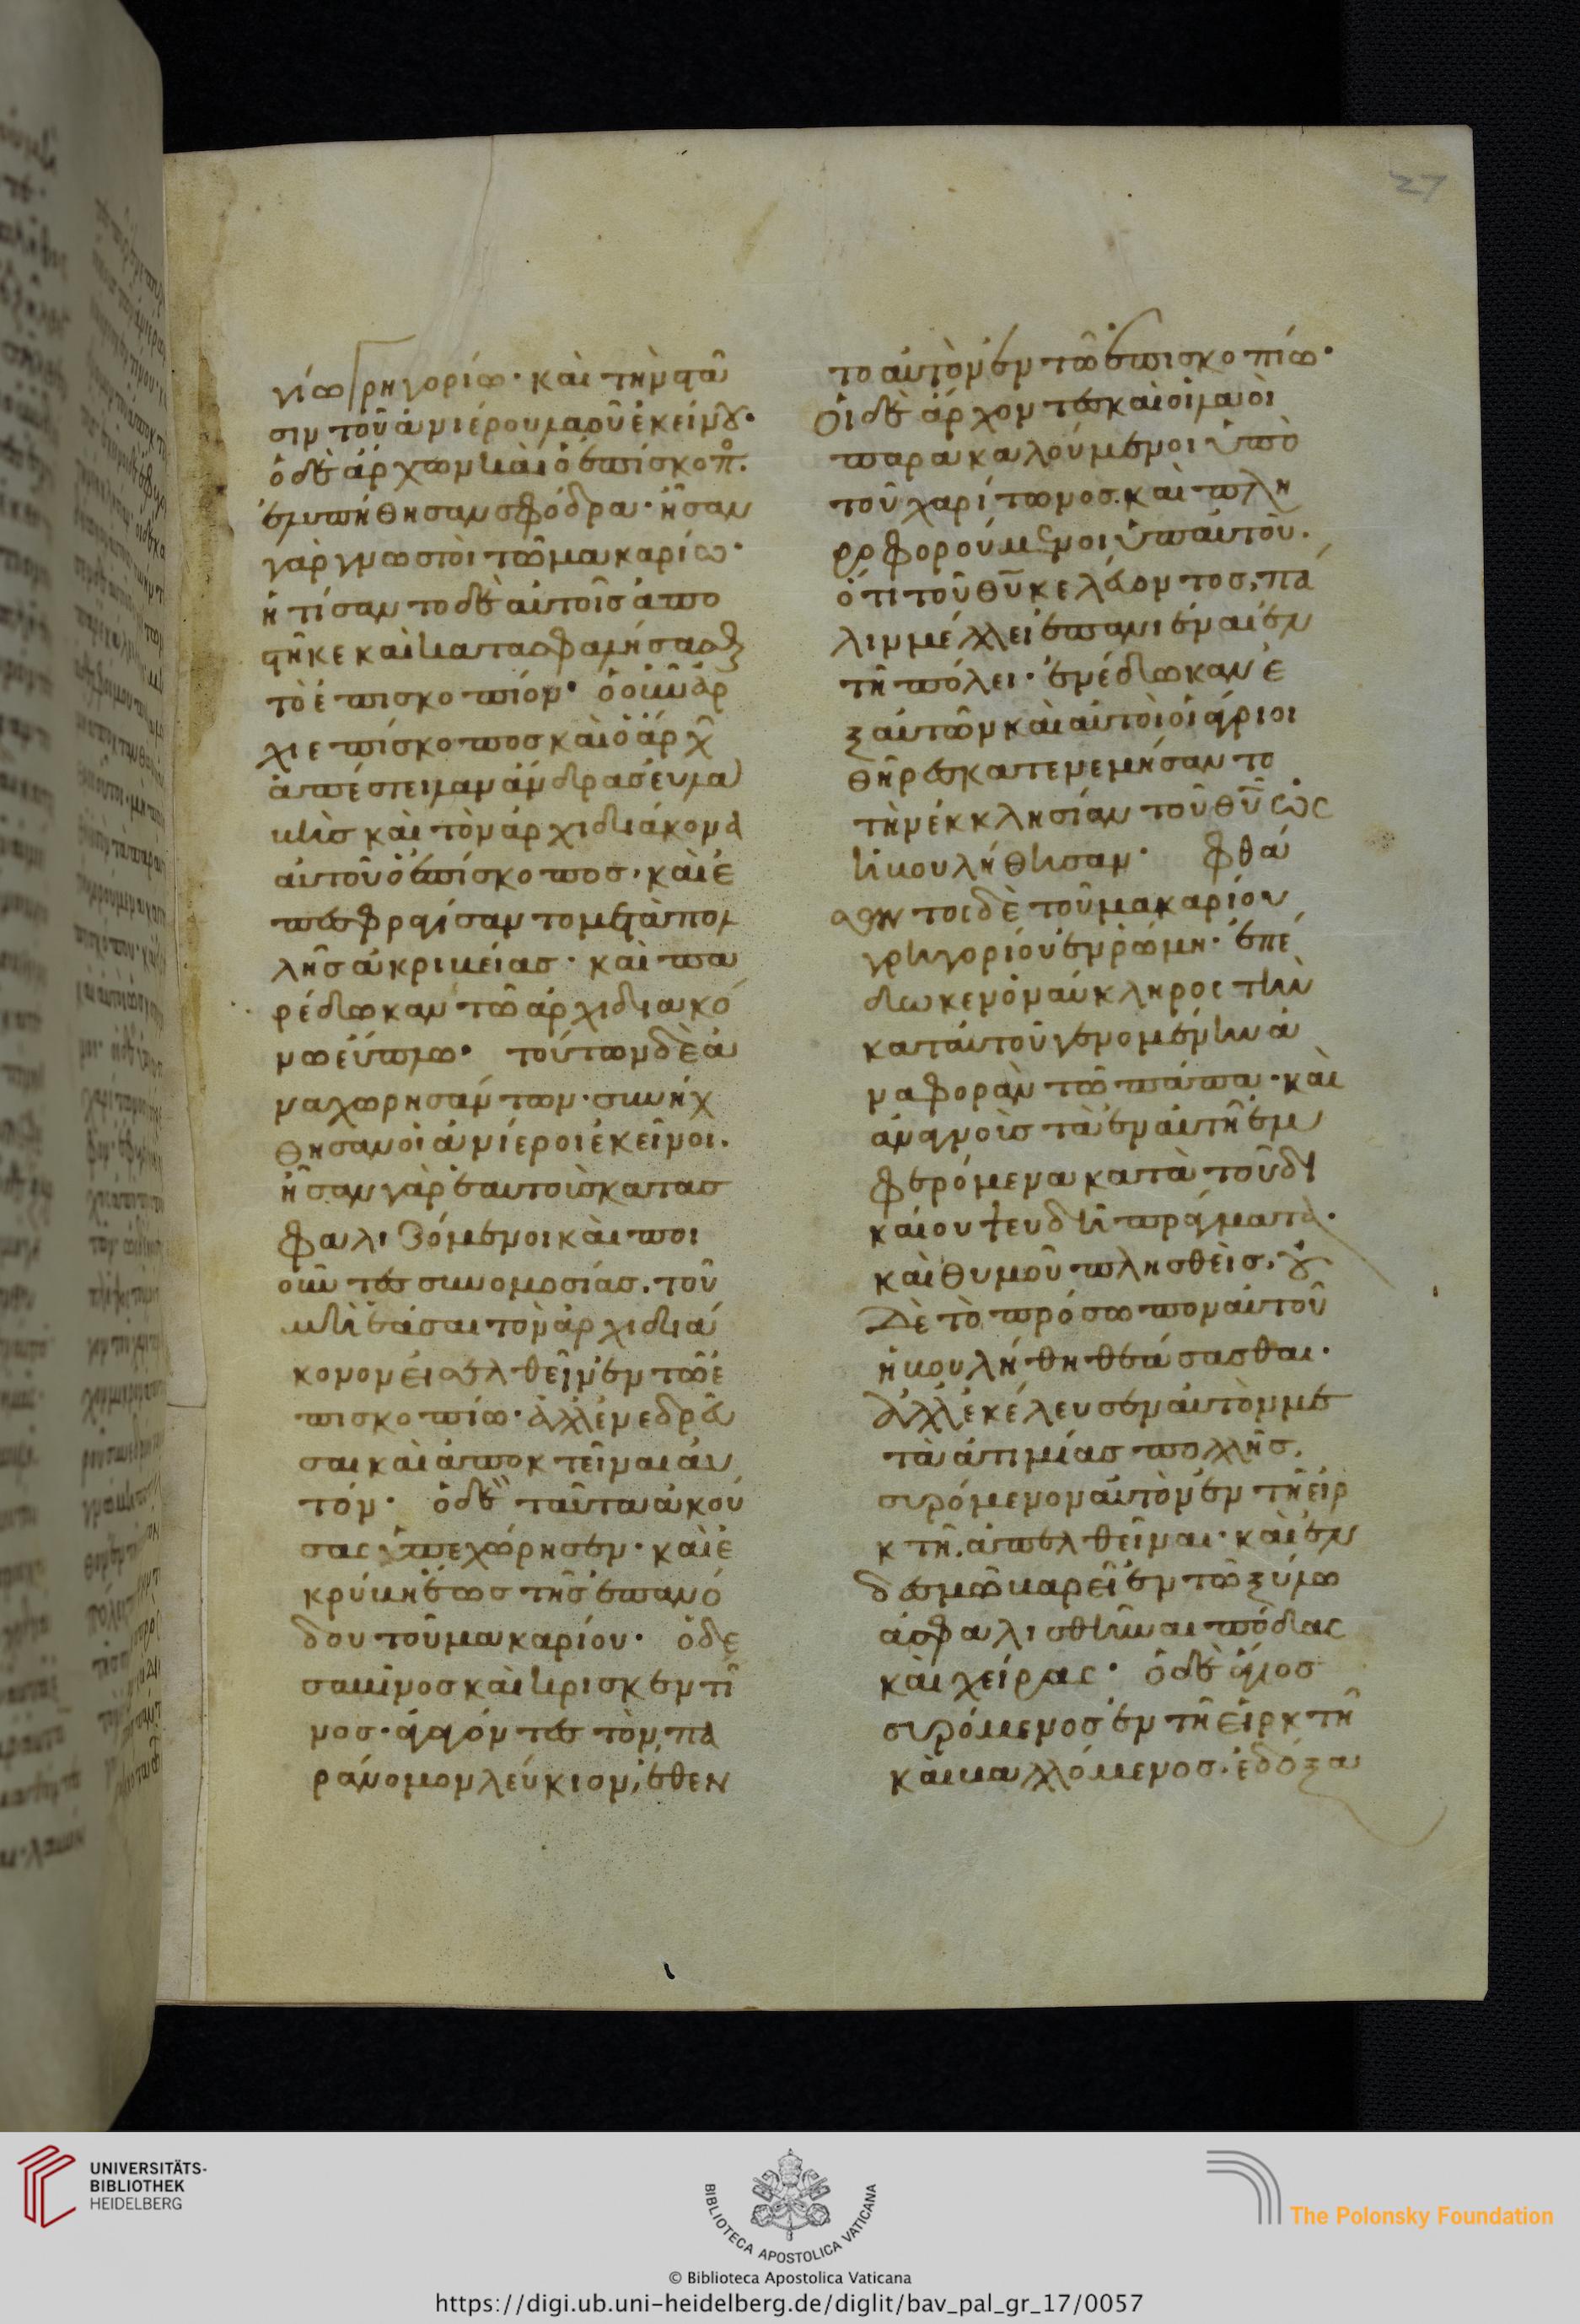 27
γίω Γρηγορίω· καὶ τὴν φᾶ
σιν τοῦ ἀνιέρου μαροῦ ἐκείνου·
ὁ δὲ ἄρχων καὶ ὁ ἐπίσκοπ.
ἐλυπήθησαν σφόδρα· ἦσαν
γὰρ γνωστοὶ τῶ μακαρίω·
ἠτίσαντο δὲ αὐτοῖς ἀπο
τὸ ἐπισκοπίον· ὁ οὖν ἀρ
χιεπίσκοπος καὶ ὁ ἄρχ
ἀπέστειλαν ἄνδρας εὐλα
βεῖς καὶ τὸν ἀρχιδιάκονα
αὐτοῦ ὁ ἐπίσκοπος, καὶ ἐ
πεσφραγίσαντο μετὰ πολ
λῆς ἀκριβείας· καὶ πα
ρέδωκαν τῶ ἀρχιδιακό
νω εὐπλω· τούτων δὲ ἀ
ναχωρησάντων· συνήχ
θησαν οἱ ἀνίεροι ἐκεῖνοι.
ἦσαν γὰρ ἑαυτοὺς κατασ
φαλιζόμενοι καὶ ποι
οῦντες συνομοσίας. τοῦ
μὴ ἐάσαι τὸν ἀρχιδιά
κονον εἰσελθεῖν ἐν τῶ ἐ
πισκοπίω· ἀλλ' ἐνεδρᾶ
σαι καὶ ἀποκτεῖναι αὐ
τόν· ὁ δὲ ταῦτα ἀκού
σας ὑπεχώρησεν· καὶ ἐ
κρύβη ἕως τῆς ἐπανό
δου τοῦ μακαρίου· ὁ δε
σαβῖνος καὶ κρισκεντῖ
νος· ἀγαγόντες τὸν πα
ράνομον λεύκιον, ἔθεν
το αὐτὸν ἐν τῶ ἐπισκοπίω·
Οἱ δὲ ἄρχοντες καὶ οἱ λαοὶ
παρακαλούμενοι ὑπὸ
τοῦ χαρίτωνος. καὶ πλη
ροφορούμενοι ὑπ' αὐτοῦ.
ὅτι τοῦ θυ κελεύοντος, πά
λιν μέλλει ἐπανιέναι ἐν
τῆ πόλει· ἐνέδωκαν ἐ
ξ αὐτῶν καὶ αὐτοὶ οἱ ἄγριοι
θῆρες κατενεμήσαντο
τὴν ἐκκλησίαν τοῦ θυ ὡς
ἠβουλήθησαν· φθά
σαντος δὲ τοῦ μακαρίου
γρηγορίου ἐν ρώμη· ἐπέ
δωκεν ὁ ναύκληρος τὴν
κατ' αὐτοῦ γενομένην ἀ
ναφορὰν τῶ πάπα· καὶ
ἀναγνοὺς τὰ ἐν αὐτῆ ἐμ
φερόμενα κατὰ τοῦ δι
καίου ψευδῆ πράγματα·
καὶ θυμοῦ πλησθεὶς, οὐ
δὲ τὸ πρόσωπον αὐτοῦ
ἠβουλήθη θεάσασθαι·
ἀλλ' ἐκέλευσεν αὐτὸν με
τὰ ἀτιμίας πολλῆς.
συρόμενον αὐτὸν ἐν τῆ εἱρ
κτῆ. ἀπελθεῖναι· καὶ ἐν
δεσμῶ βαρεῖ ἐν τῶ ξύλω
ἀσφαλισθῆναι πόδας
καὶ χεῖρας· ὁ δὲ ἅγιος
συρόμενος ἐν τῆ εἱρκτῆ
καὶ βαλλόμενος. ἐδόξα
UNIVERSITÄTS-
BIBLIOTHEK
HEIDELBERG
BIBLIOTECA APOSTOLICA VATICANA
The Polonsky Foundation
© Biblioteca Apostolica Vaticana
https://digi.ub.uni-heidelberg.de/diglit/bav_pal_gr_17/0057